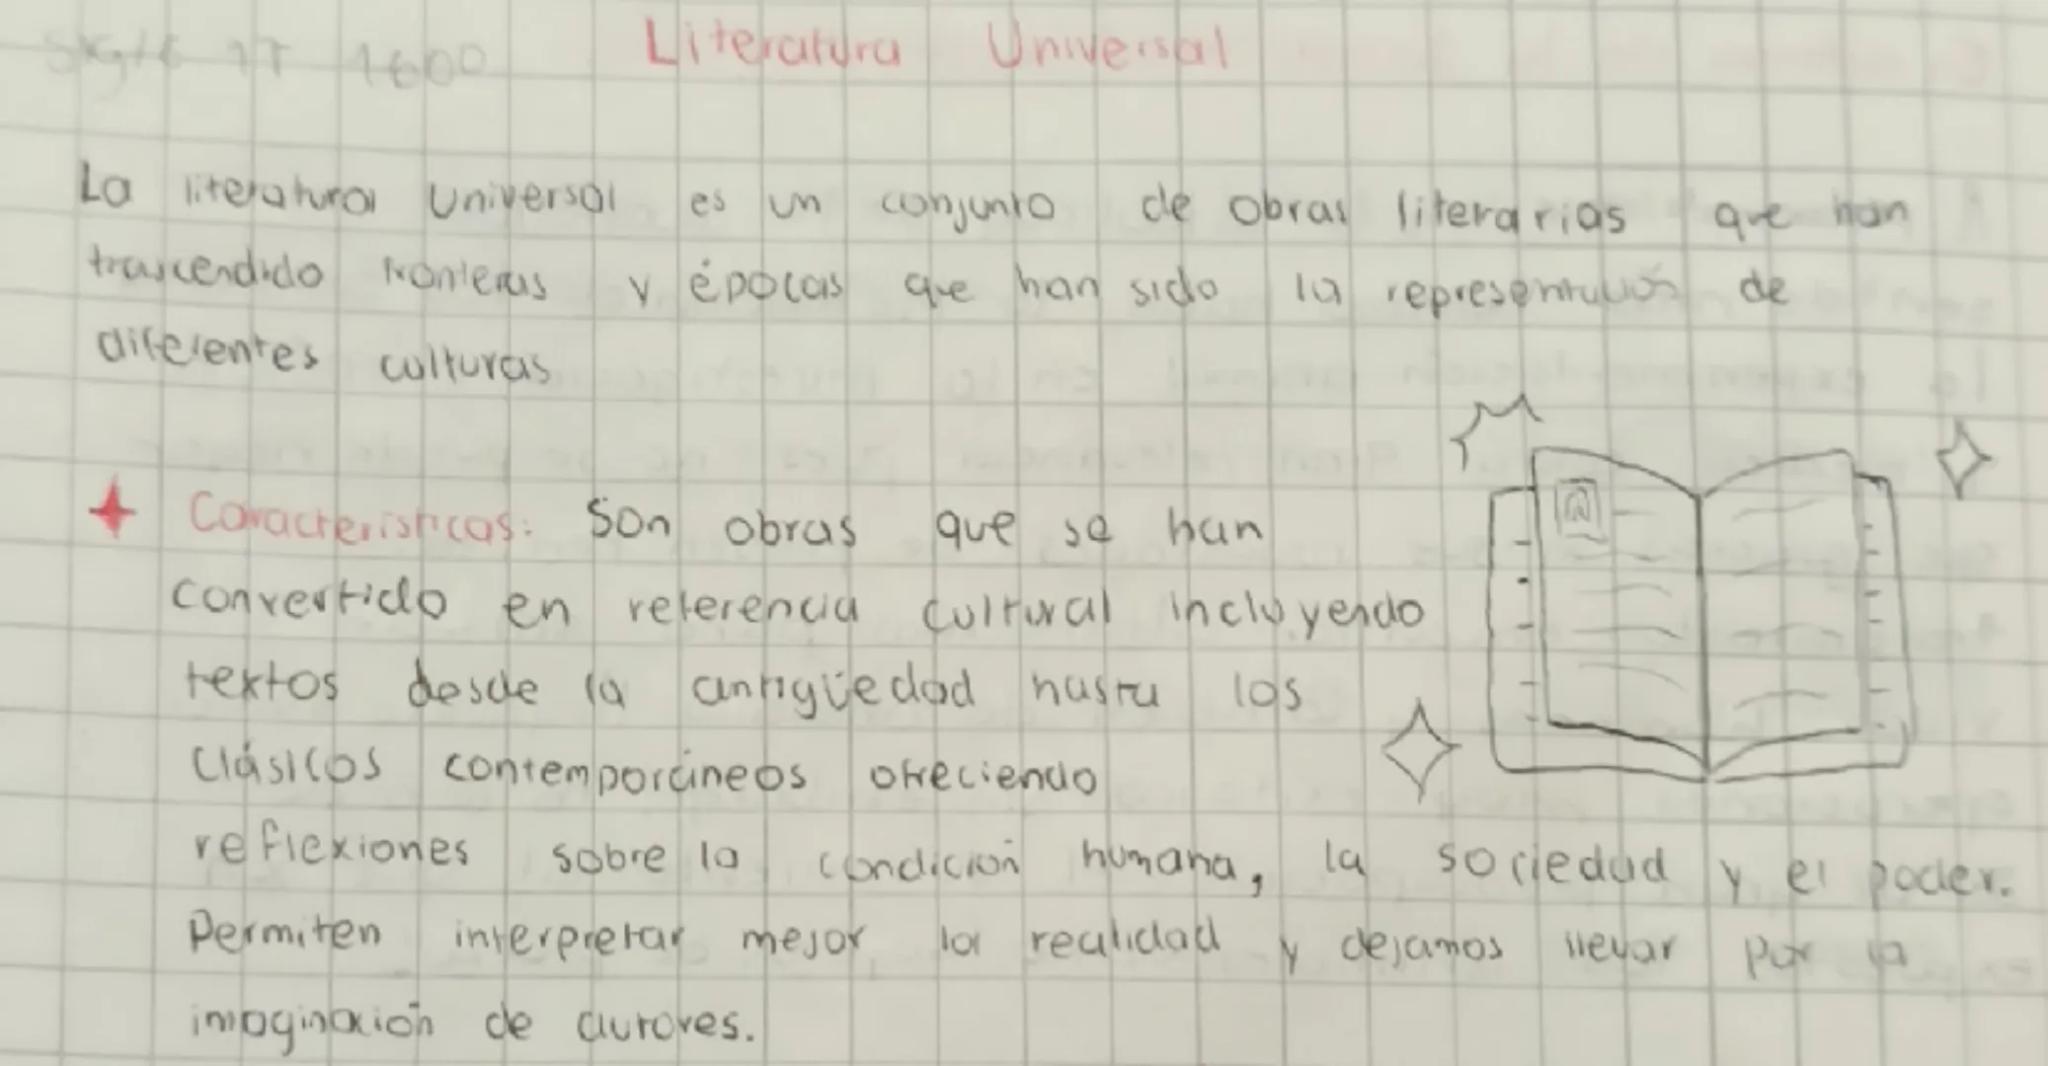 Siglo 17 1600
Literatura Universal
La literatura Universal es un conjunto de obras literarias que han
trascendido fronteras y épocas que han sido la representación de
diferentes culturas
Características: Son obras que se han
convertido en referencia cultural incluyendo
textos desde la antigüedad hasta los
Clásicos contemporáneos ofreciendo
reflexiones sobre la condición humana, la sociedad y el poder.
Permiten interpretar mejor la realidad y dejamos llevar por la
imaginación de autores.